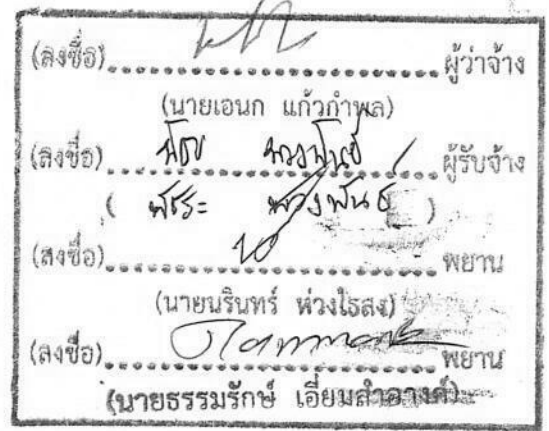 (ลงชื่อ)........................ผู้ว่าจ้าง
(นายเอนก แก้วกำพล)
(ลงชื่อ)........................ผู้รับจ้าง
( พัชระ พวงพันธ์ )
(ลงชื่อ)........................พยาน
(นายนรินทร์ ห่วงไธสง)
(ลงชื่อ)........................พยาน
(นายธรรมรักษ์ เอี่ยมสำอางค์)